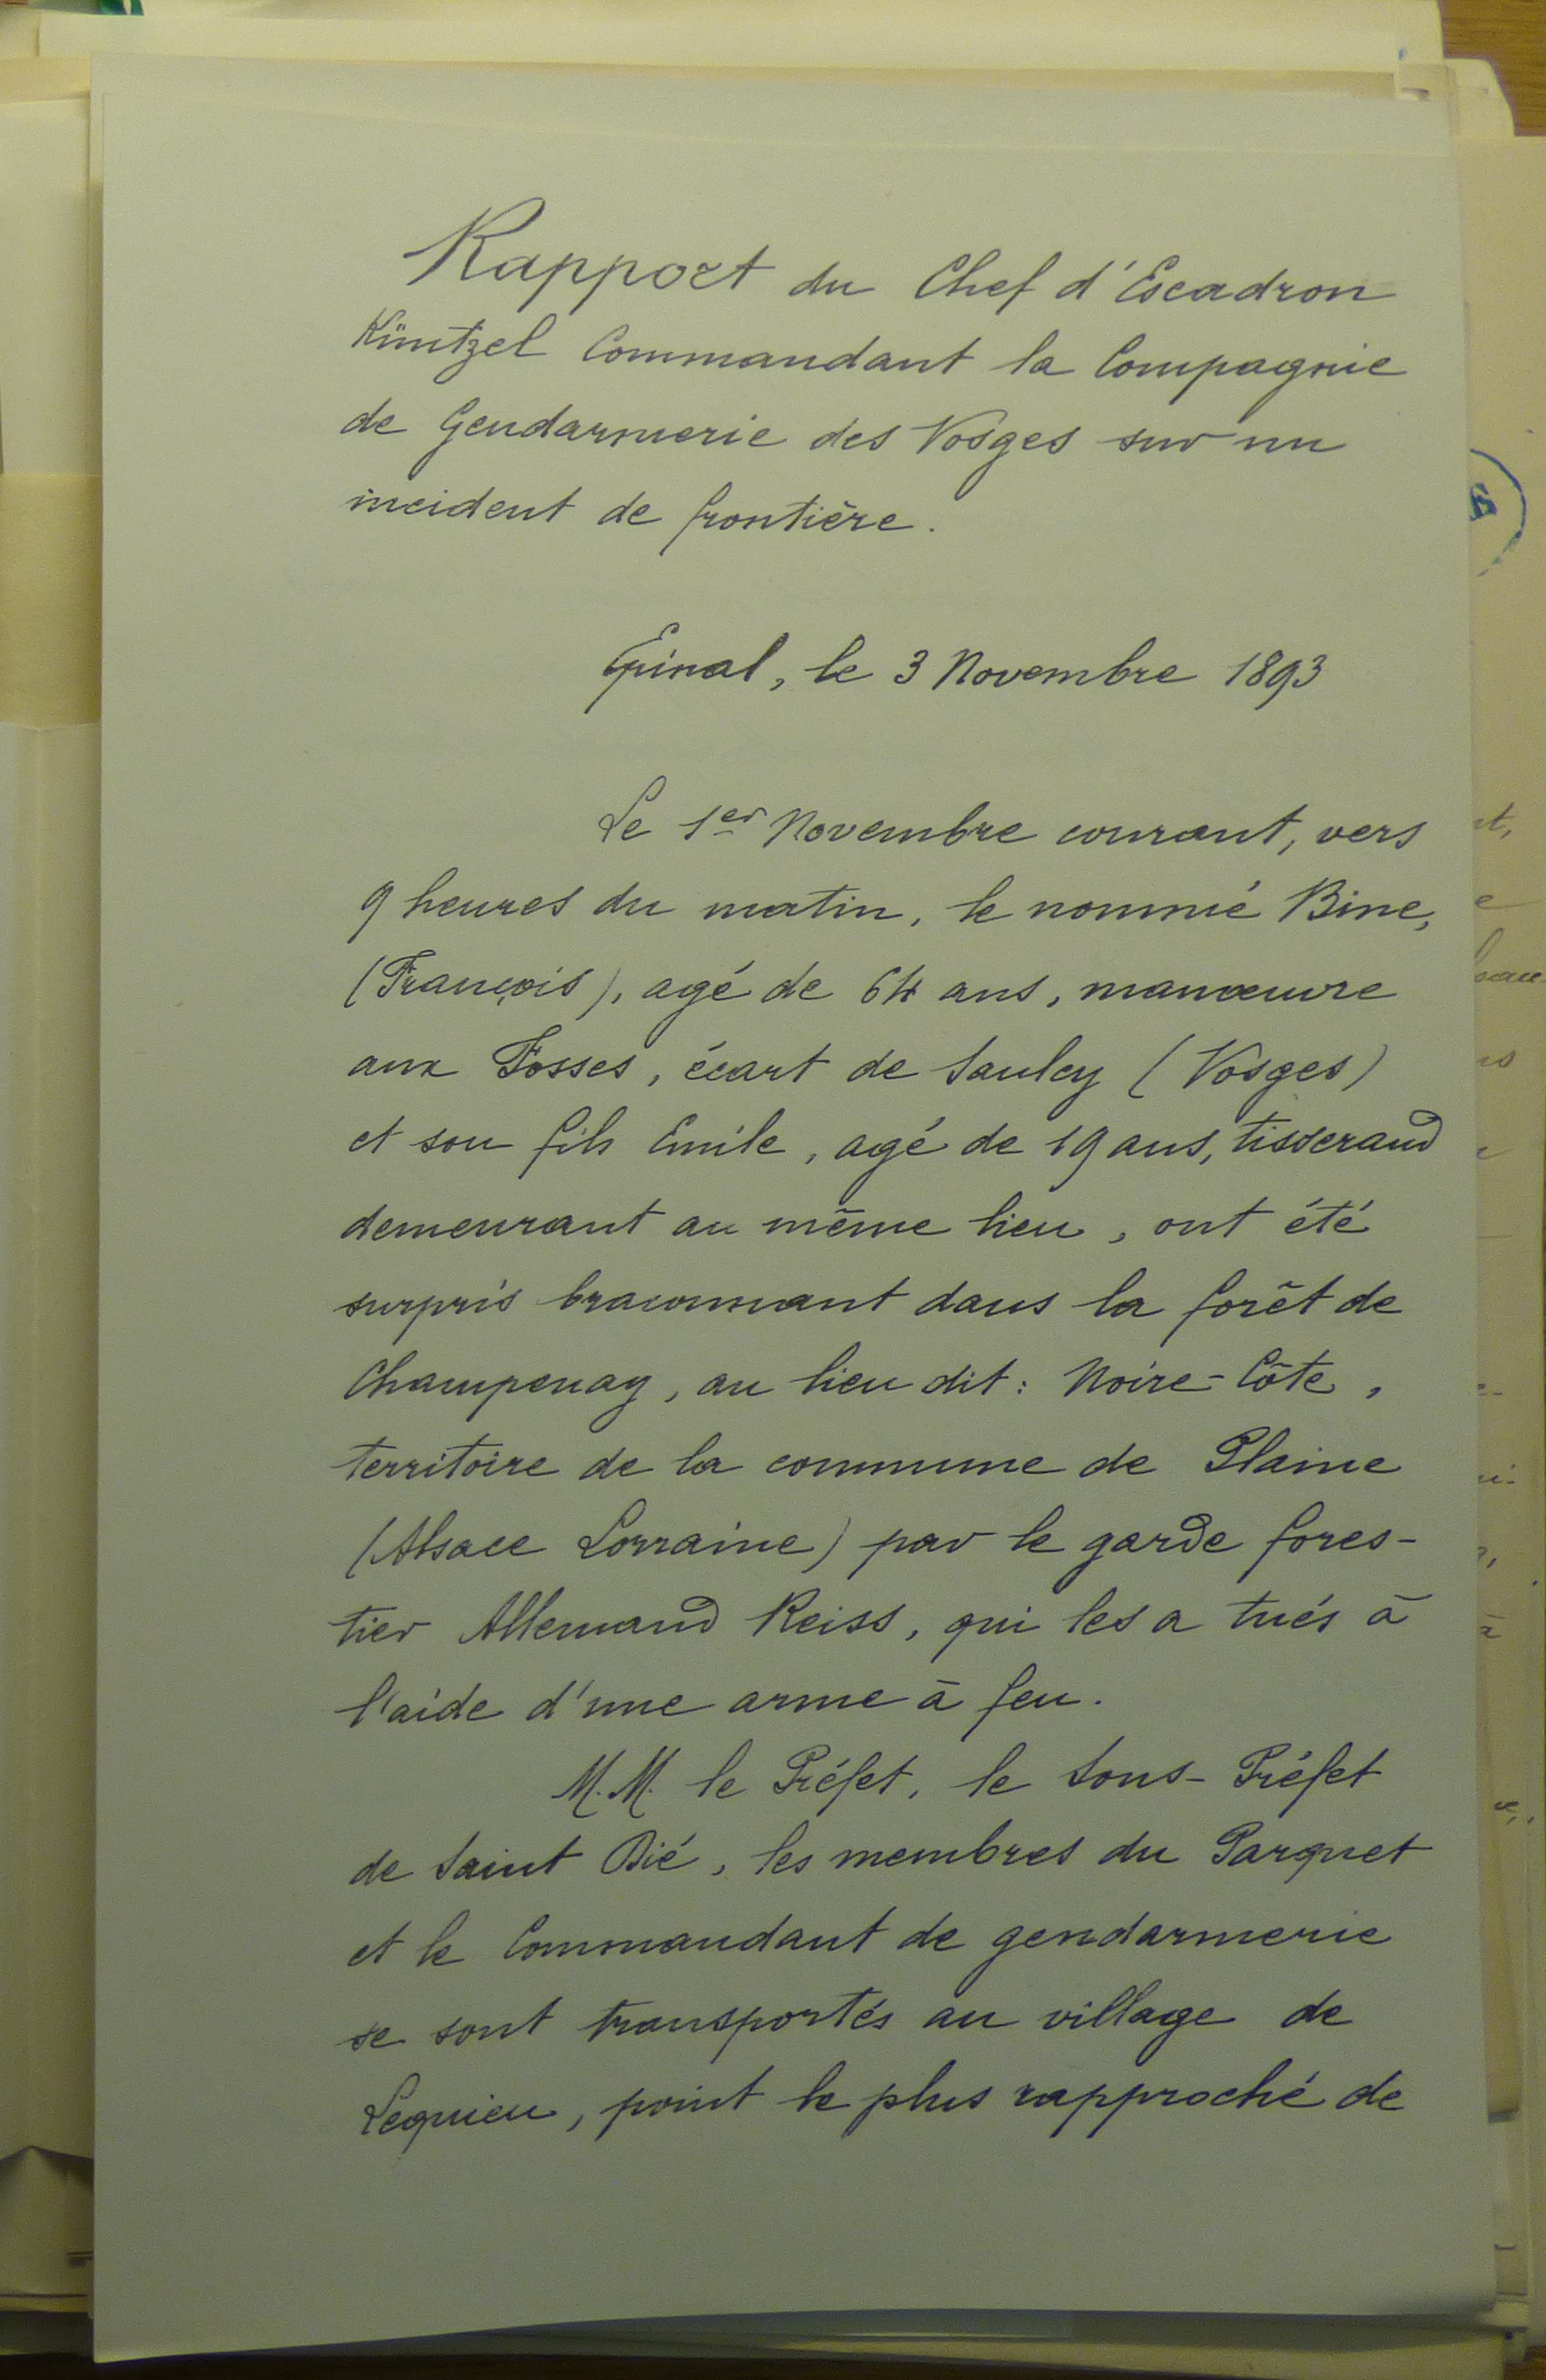 Rapport du Chef d'Escadron
Küntzel Commandant la Compagnie
de Gendarmerie des Vosges sur un
incident de frontière.
Épinal, le 3 Novembre 1893
Le 1er Novembre courant, vers
9 heures du matin, le nommé Bine,
(François), agé de 64 ans, manœuvre
aux Fosses, écart de Saulcy (Vosges)
et son fils Emile, agé de 19 ans, tisserand
demeurant au même lieu, ont été
surpris braconnant dans la forêt de
Champenay, au lieu dit : Noire-Côte,
territoire de la commune de Plaine
(Alsace Lorraine) par le garde fores-
tier Allemand Reiss, qui les a tués à
l'aide d'une arme à feu.
M.M. le Préfet, le Sous-Préfet
de Saint Dié, les membres du Parquet
et le Commandant de gendarmerie
se sont transportés au village de
Lequieu, point le plus rapproché de